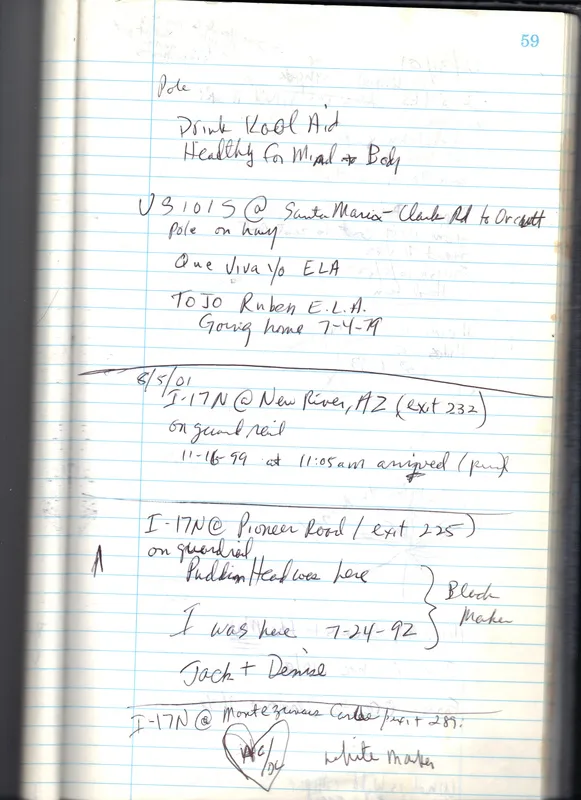 59
Pole
Drink Kool Aid
Healthy for Mind + Body
US 101 S @ Santa Maria - Clark Rd to Orcutt
Pole on hwy
Que Viva y/o ELA
TOJO Ruben E.L.A.
Going home 7-4-79
8/5/01
I-17N @ New River, AZ (exit 232)
on guard rail
11-16-99 at 11:05am arrived
I-17N @ Pioneer Road / exit 225)
on guardrail
Puddin Head was here
I was here 7-24-92
Black
Maker
Jack + Denise
I-17N @ Montezumas Castle / exit 289:
white maker